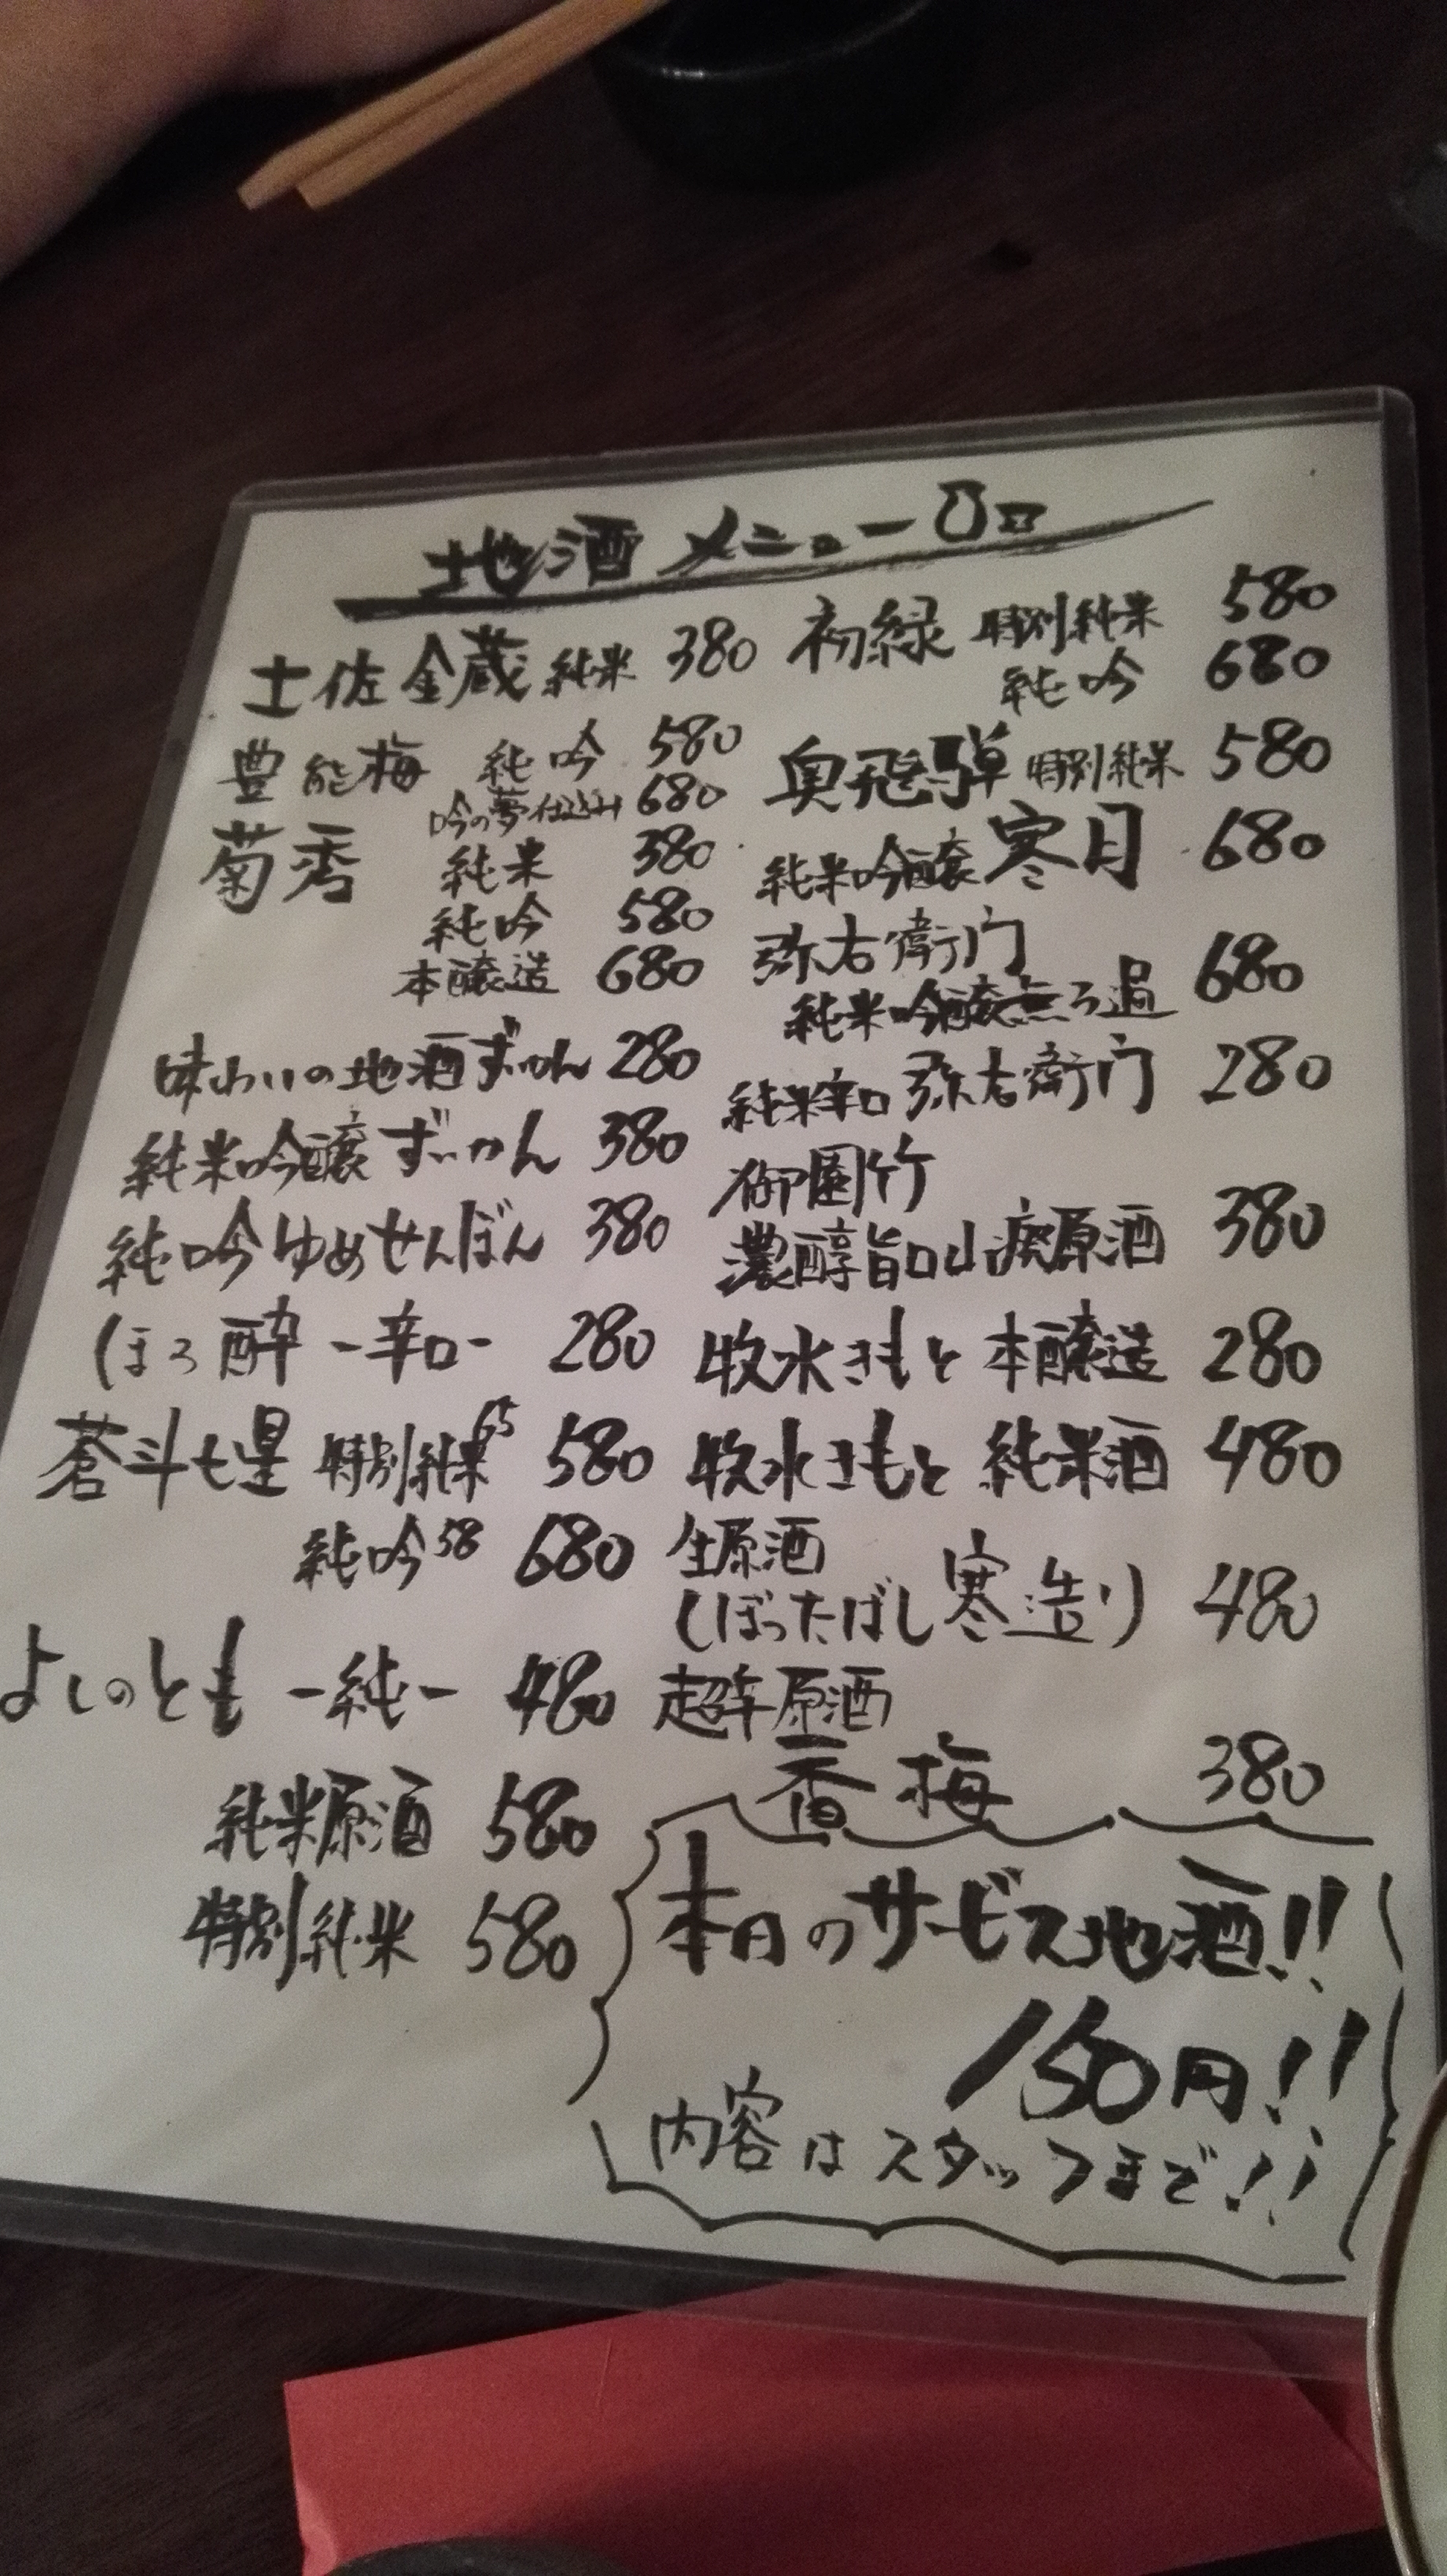 地酒メニュー
土佐金蔵 純米 380
豊能梅 純吟 580
吟の夢仕込み 680
菊秀 純米 380
純吟 580
本醸造 680
味わいの地酒ずいかん 280
純米吟醸 ずいかん 380
純吟ゆめせんぼん 380
ほろ酔 -辛口- 280
蒼斗七星 特別純米65 580
純吟58 680
よしのとも -純- 480
純米原酒 580
特別純米 580
初緑 特別純米 580
純吟 680
奥飛騨 特別純米 580
純米吟醸 寒月 680
弥右衛門
純米吟醸無ろ過 680
純米辛口 弥右衛門 280
御園竹
濃醇旨口山廃原酒 380
牧水きもと 本醸造 280
牧水きもと 純米酒 480
生原酒
しぼったばし寒造り 480
超辛原酒
香梅 380
本日のサービス地酒!!
150円!!
内容はスタッフまで!!